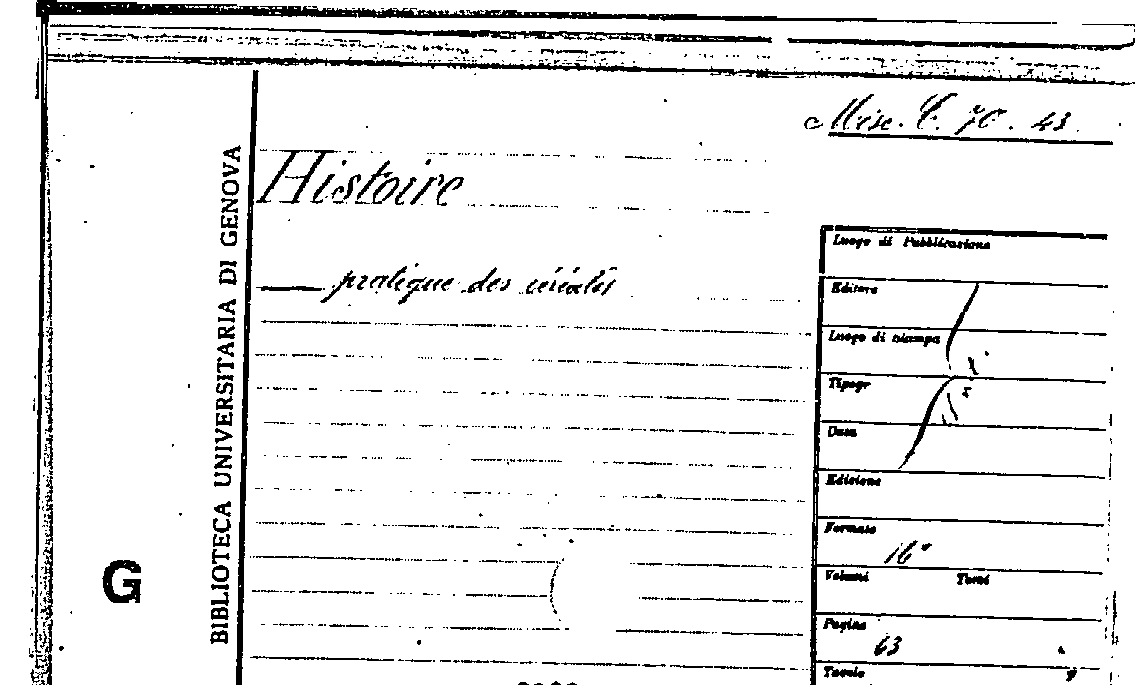 Misc. C. 70. 43
BIBLIOTECA UNIVERSITARIA DI GENOVA
Histoire
— pratique des céréales
G
Luogo di Pubblicazione
Editore
Luogo di stampa
Tipogr
Data
Edizione
Formato
16°
Volumi Tomi
Pagine
63
Tavole